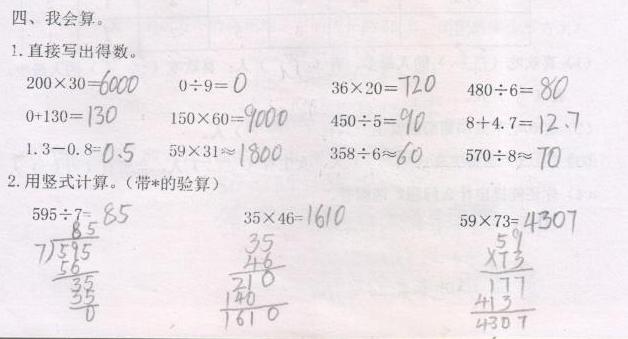 四、我会算。
1.直接写出得数。
200×30=6000 0÷9=0 36×20=720 480÷6=80
0+130=130 150×60=9000 450÷5=90 8+4.7=12.7
1.3-0.8=0.5 59×31≈1800 358÷6≈60 570÷8≈70
2.用竖式计算。(带*的验算)
595÷7=85 35×46=1610 59×73=4307
85 35 59
7)595 46 ×73
56 210 177
35 140 413
35 1610 4307
0